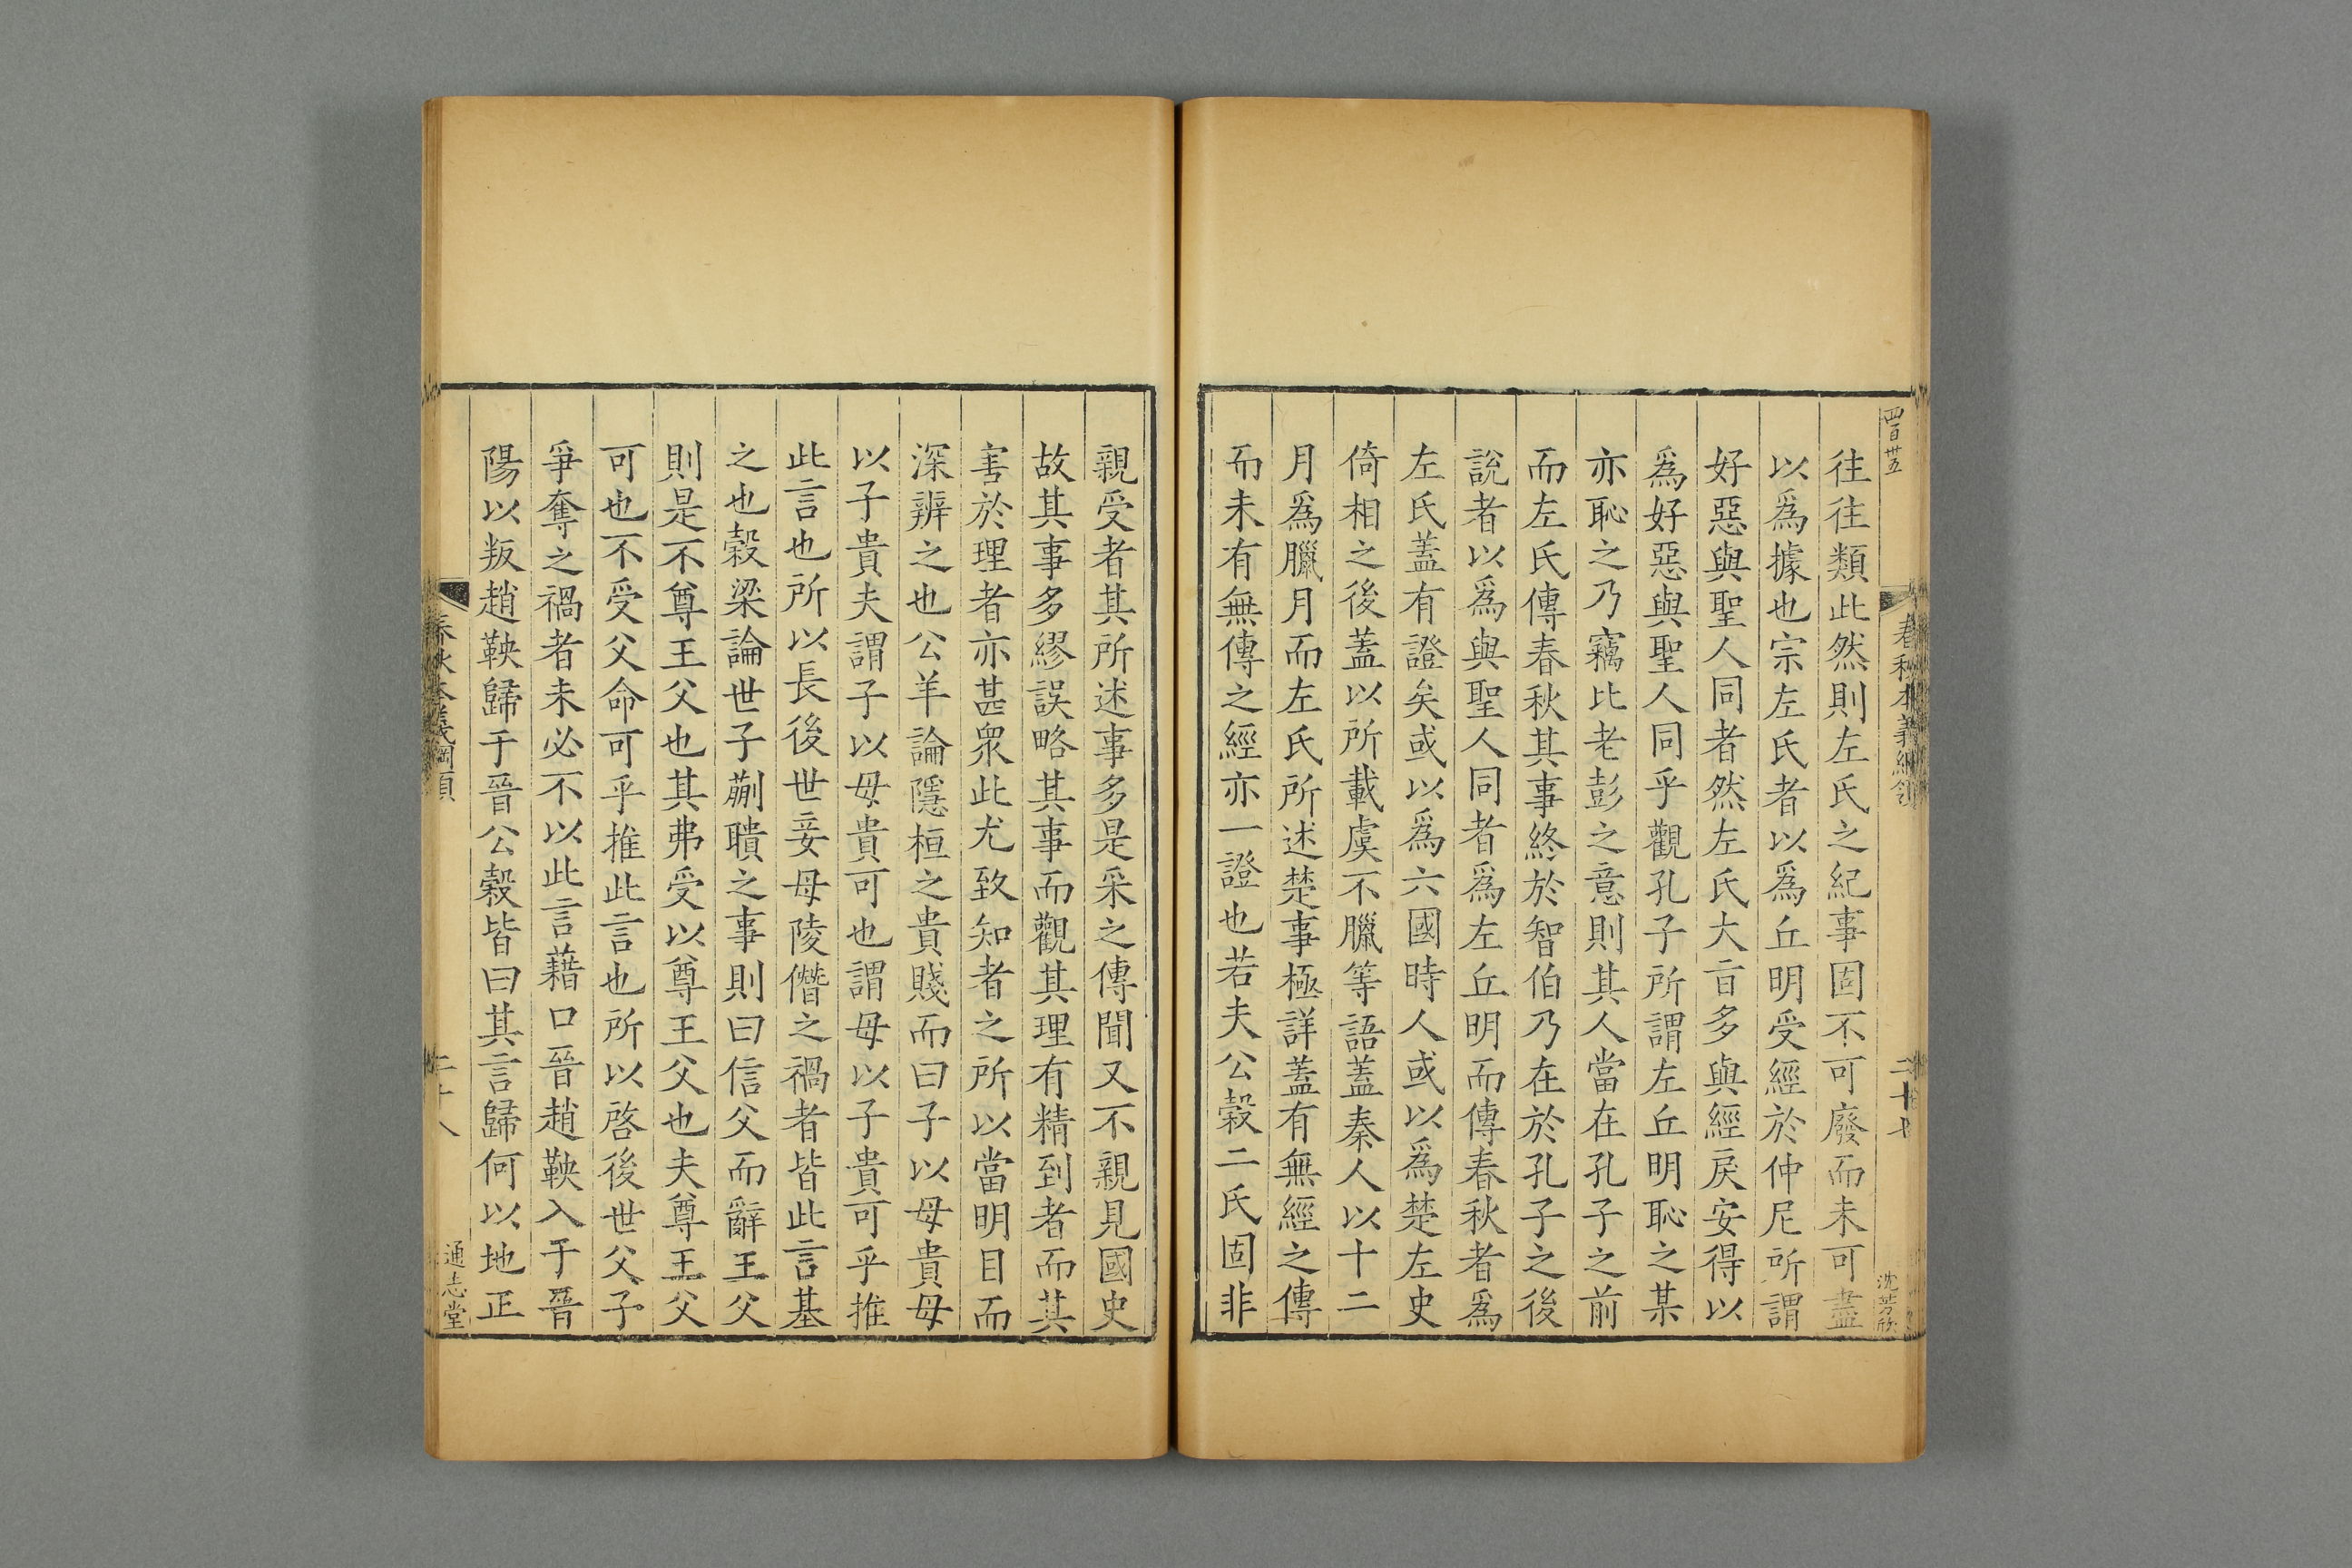 四百廿五
春秋本義綱領
二十七
沈芳欣
往往類此然則左氏之紀事固不可廢而未可盡
以爲據也宗左氏者以爲丘明受經於仲尼所謂
好惡與聖人同者然左氏大㫖多與經戾安得以
爲好惡與聖人同乎觀孔子所謂左丘明恥之某
亦恥之乃竊比老彭之意則其人當在孔子之前
而左氏傳春秋其事終於智伯乃在於孔子之後
說者以爲與聖人同者爲左丘明而傳春秋者爲
左氏蓋有證矣或以爲六國時人或以爲楚左史
倚相之後蓋以所載虞不臘等語蓋秦人以十二
月爲臘月而左氏所述楚事極詳蓋有無經之傳
而未有無傳之經亦一證也若夫公穀二氏固非
親受者其所述事多是采之傳聞又不親見國史
故其事多繆誤略其事而觀其理有精到者而其
害於理者亦甚衆此尤致知者之所以當明目而
深辨之也公羊論隱桓之貴賤而曰子以母貴母
以子貴夫謂子以母貴可也謂母以子貴可乎推
此言也所以長後世妾母陵僭之禍者皆此言基
之也穀梁論世子蒯聵之事則曰信父而辭王父
則是不尊王父也其弗受以尊王父也夫尊王父
可也不受父命可乎推此言也所以啓後世父子
爭奪之禍者未必不以此言藉口晉趙鞅入于晉
陽以叛趙鞅歸于晉公穀皆曰其言歸何以地正
春秋本義綱領
二十八
通志堂